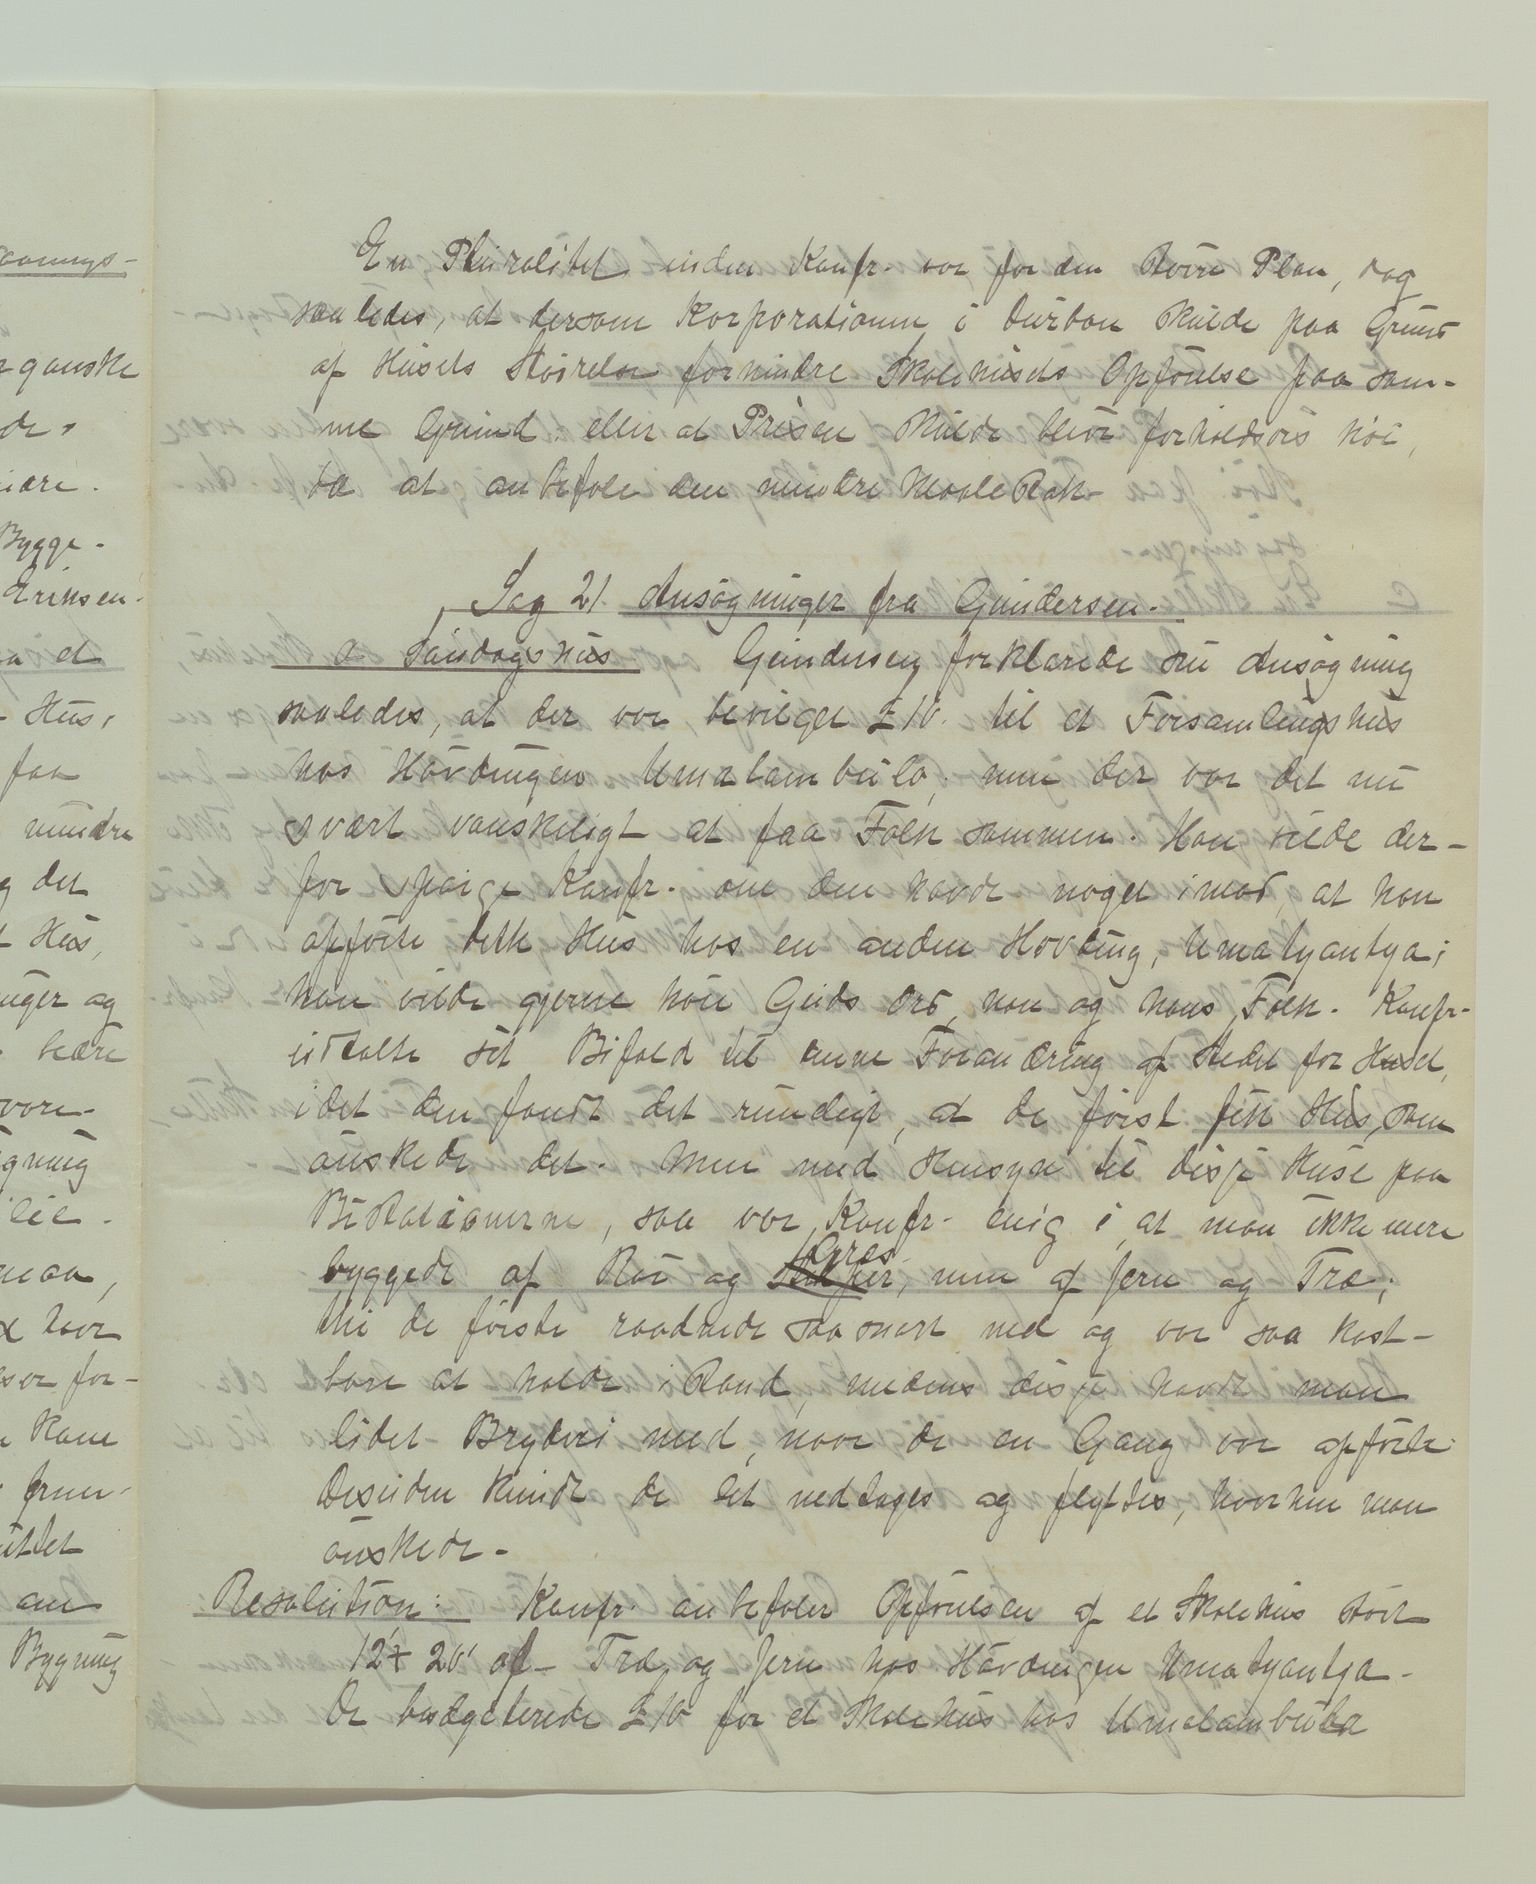 En Pluralitet inden Konfr. var for den større Plan, dog
saaledes, at dersom Korporationen i Durban skulde paa Grund
af Husets Størrelse forhindre Skolehusets Opførelse paa sam-
me Grund eller at Prisen skulde blive forholdsvis høi,
da at anbefale den mindre Maalestok.
Sag 21 Ansøgninger fra Gundersen.
a Søndagshus Gundersen forklarede sin Ansøgning
saaledes, at der var bevilget £10 til et Forsamlingshus
hos Høvdingen Umatambula, men der var det nu
svært vanskeligt at faa Folk sammen. Han vilde der-
for spørge Konfr. om den havde noget imod, at han
opførte dette Hus hos en anden Høvding, Umatyantya;
han vilde gjerne høre Guds Ord, han og hans Folk. Konfr.
udtalte sit Bifald til denne Forandring af Stedet for Huset,
idet den fandt det rimeligt, at de først fik Hus, som
ønskede det. Men med Hensyn til disse Huse paa
Bistationerne, saa var Konfr. enig i, at man ikke mere
byggede af Rør og Græs, men af Jern og Træ,
thi de første raadnede saa snart ned og var saa kost-
bare at holde i Stand, medens disse havde man
lidet Bryderi med, naar de en Gang var opførte.
Desuden kunde de let nedtages og flyttes, hvorhen man
ønskede.
Resolution: Konfr. anbefaler Opførelsen af et Skolehus stort
12' x 20' af Træ og Jern hos Høvdingen Umatyantya.
De budgeterede £10 for et Skolehus hos Umatambula
ganske
Bygge-
Eriksen.
a et
Hus,
faa
mindre
g det
Hus,
nger og
bedre
for-
Bygning